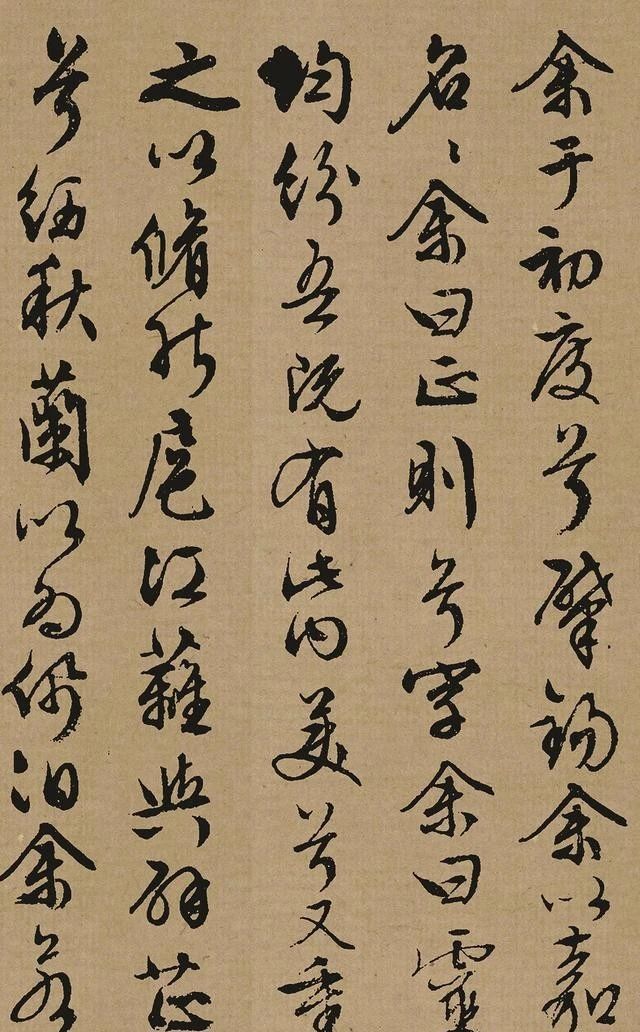 余于初度兮肇錫余以嘉
名〻余曰正則兮字余曰靈
均紛吾既有此内美兮又重
之以脩能扈江蘺與辟芷
兮紉秋蘭以為佩汩余若